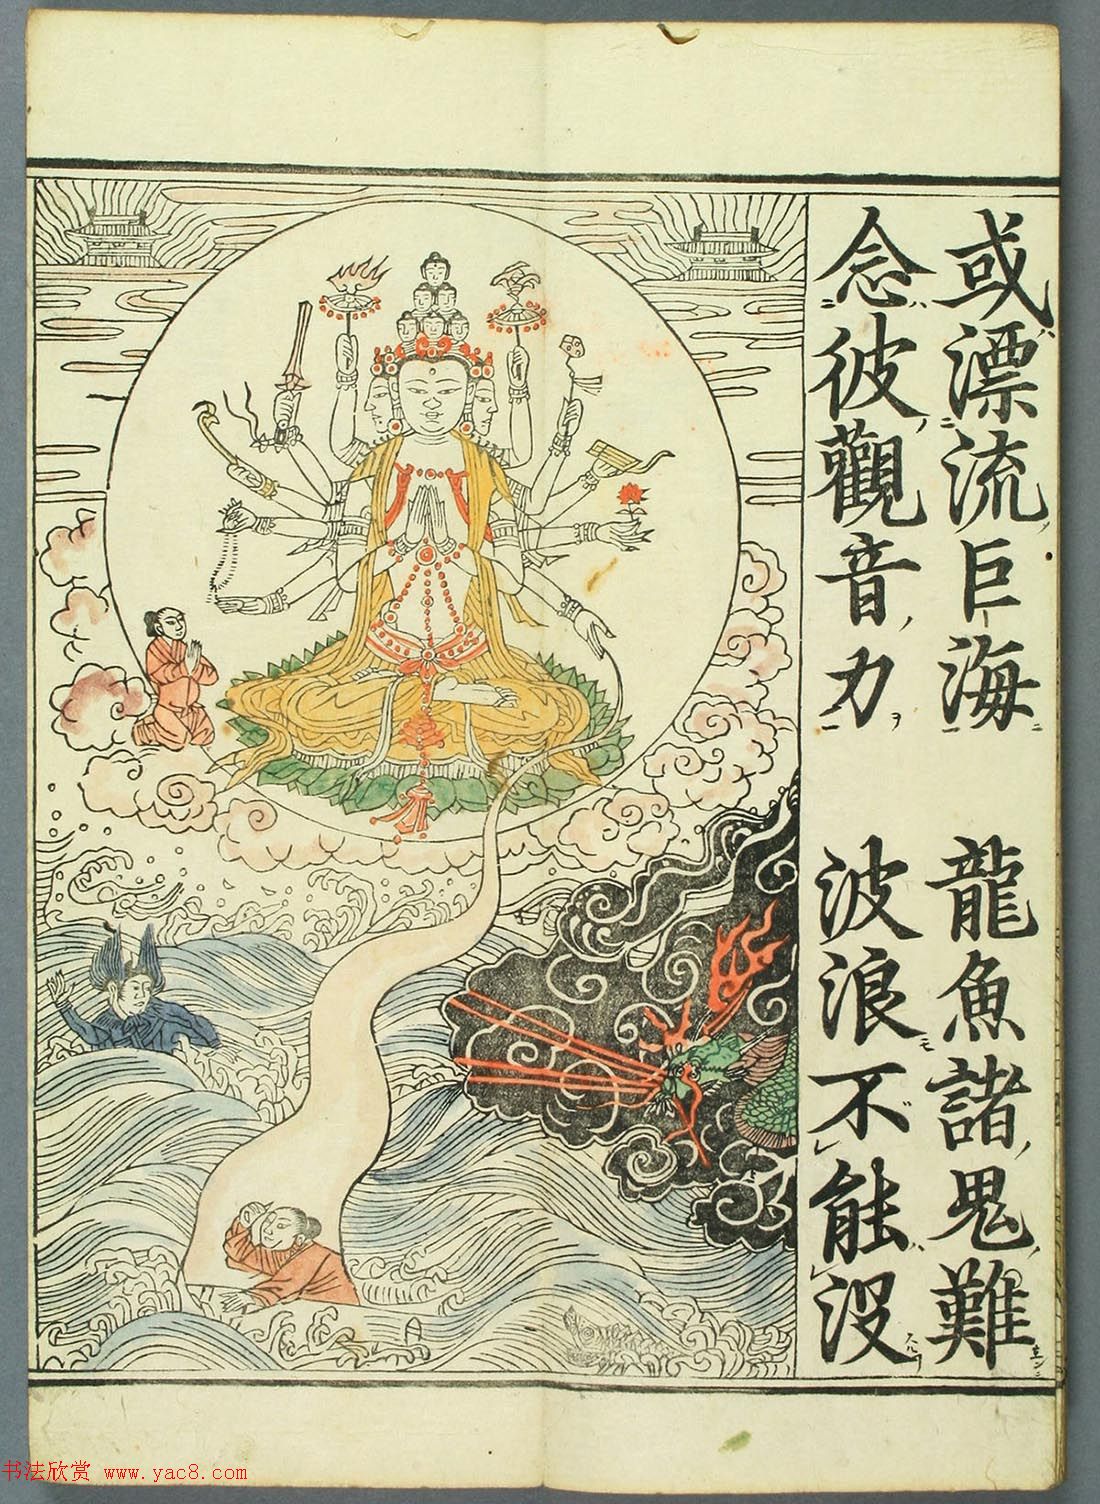 或漂流巨海 龍魚諸鬼難
念彼觀音力 波浪不能没
书法欣赏 www.yac8.com